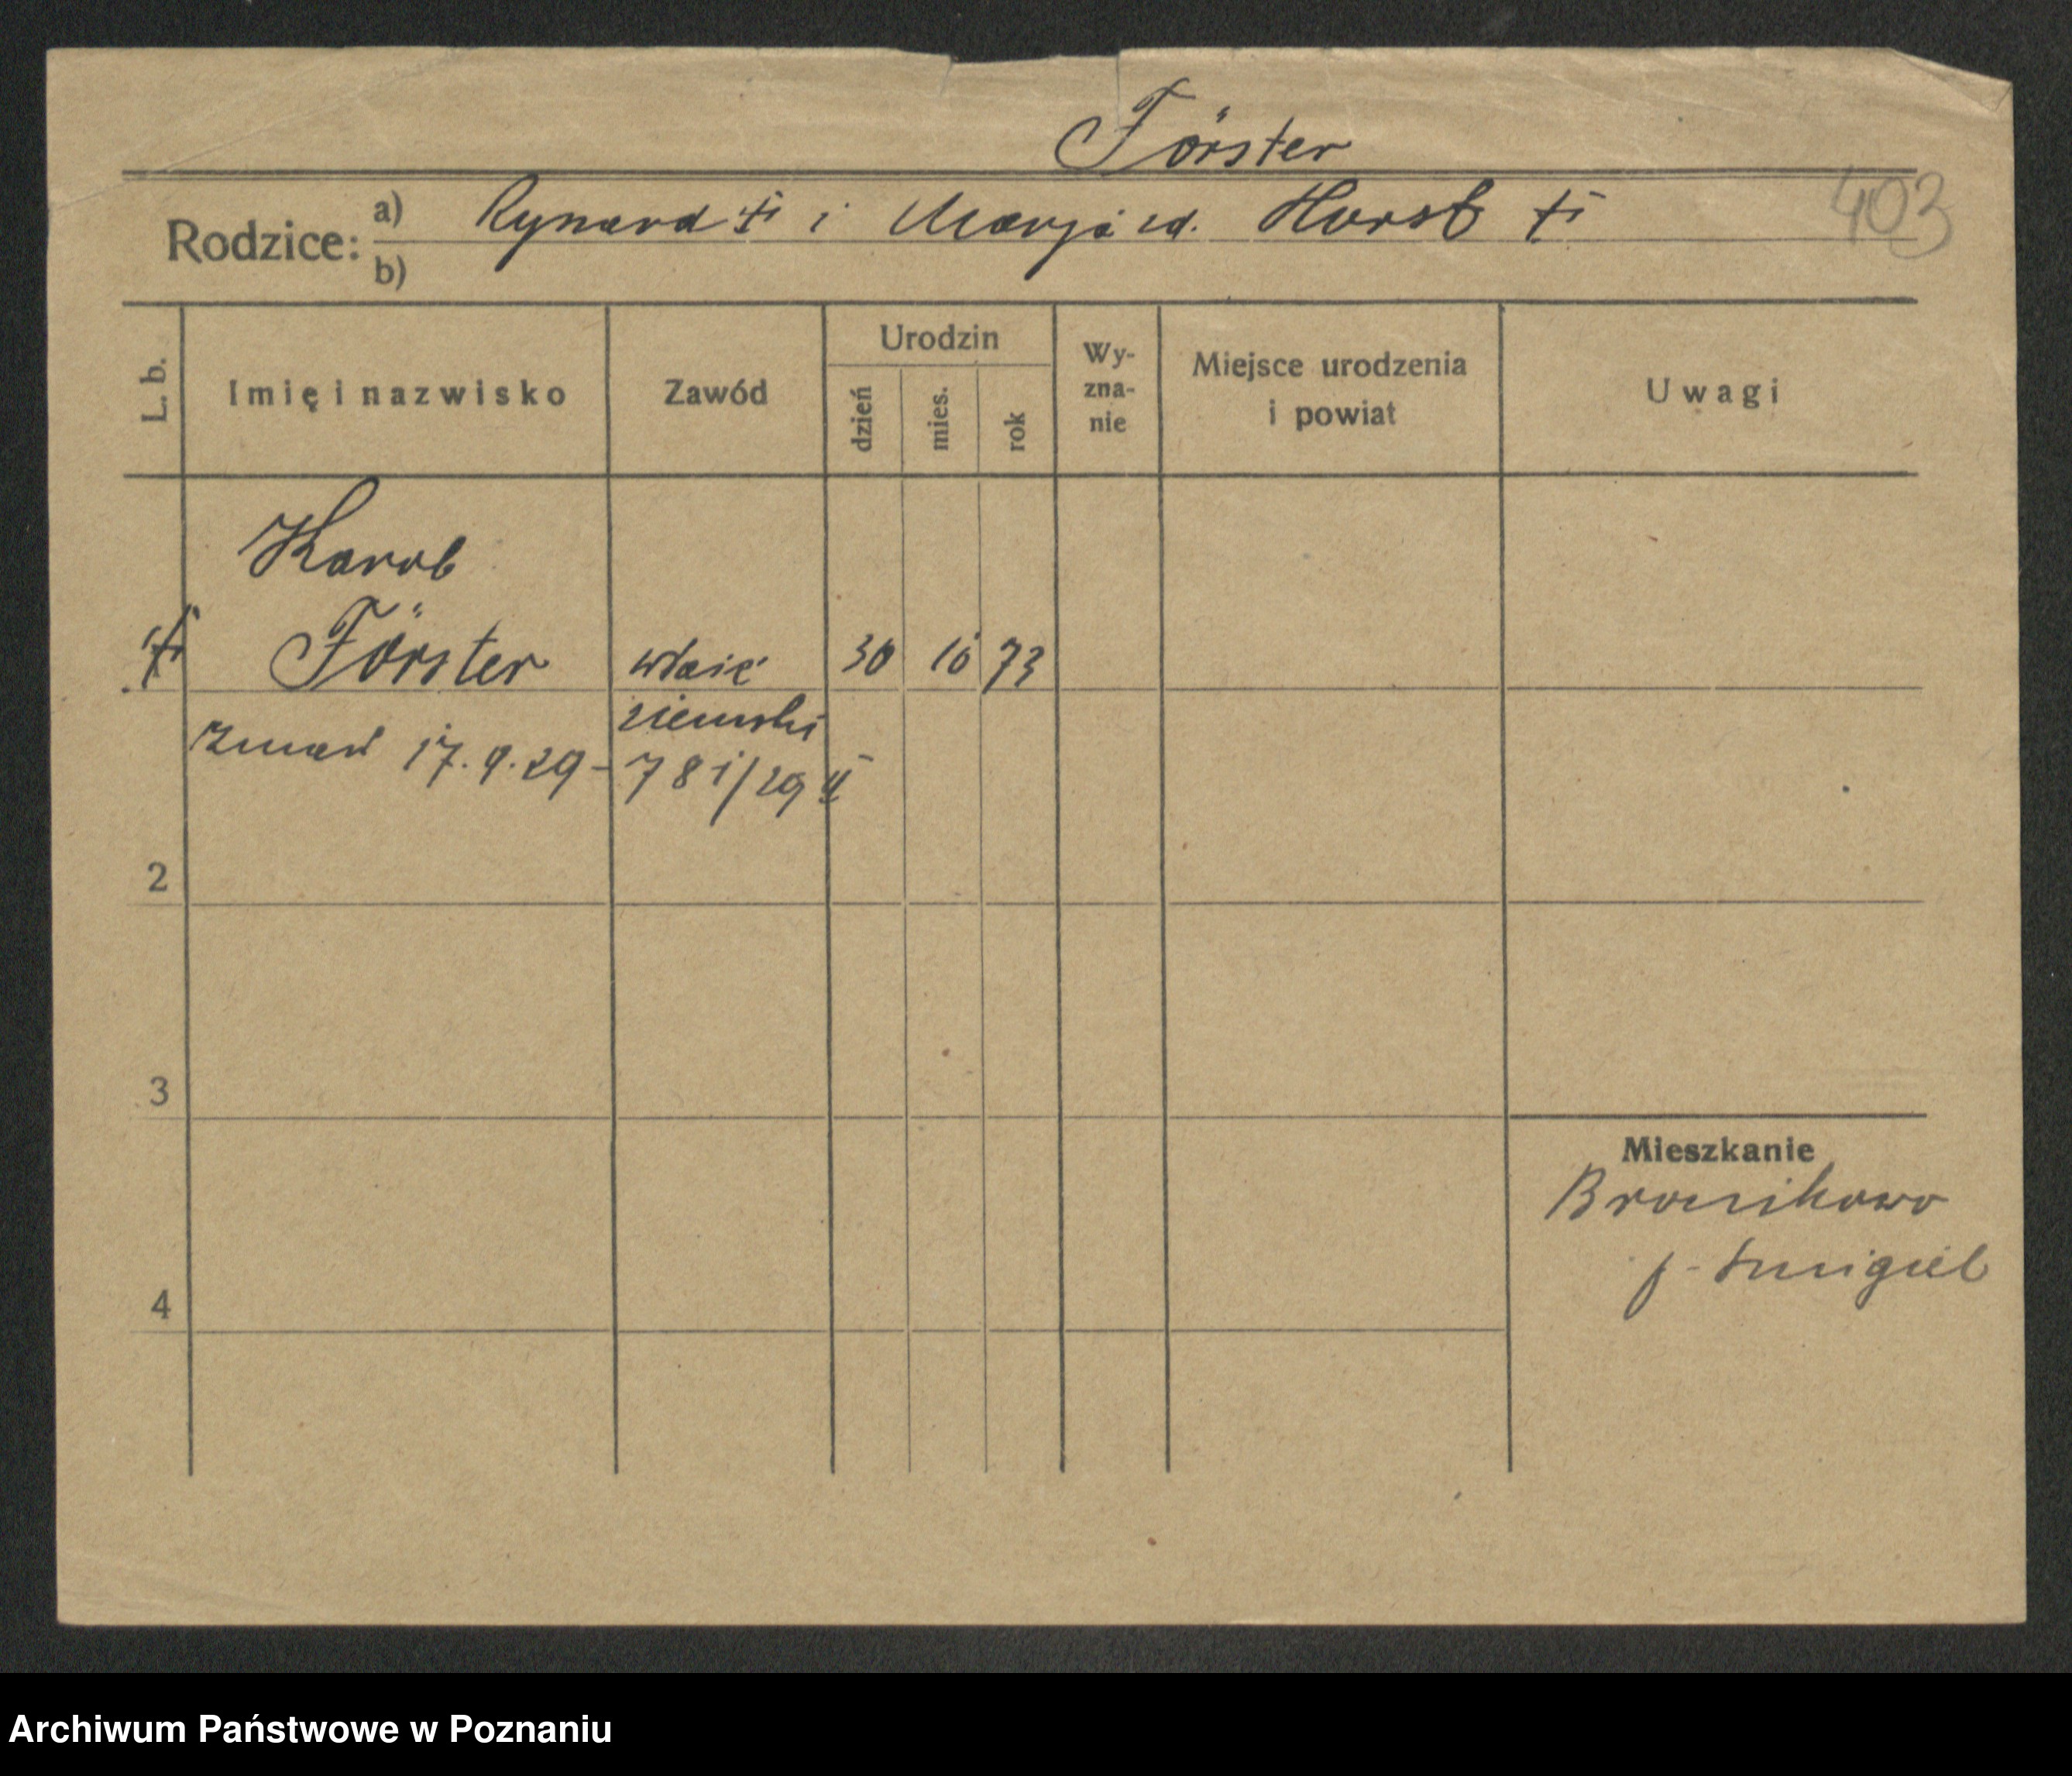 Förster
403
Rodzice: a) Rynard † i Marja zd. Horst †
b)
L. b. Imię i nazwisko Zawód Urodzin dzień mies. rok Wy-zna-nie Miejsce urodzenia i powiat Uwagi
Karol
† Förster właśc 30 10 73
ziemski
zmarł 17.9.29 - 781/29 II
2
3
Mieszkanie
Bronikowo
p. Śmigiel
4
Archiwum Państwowe w Poznaniu